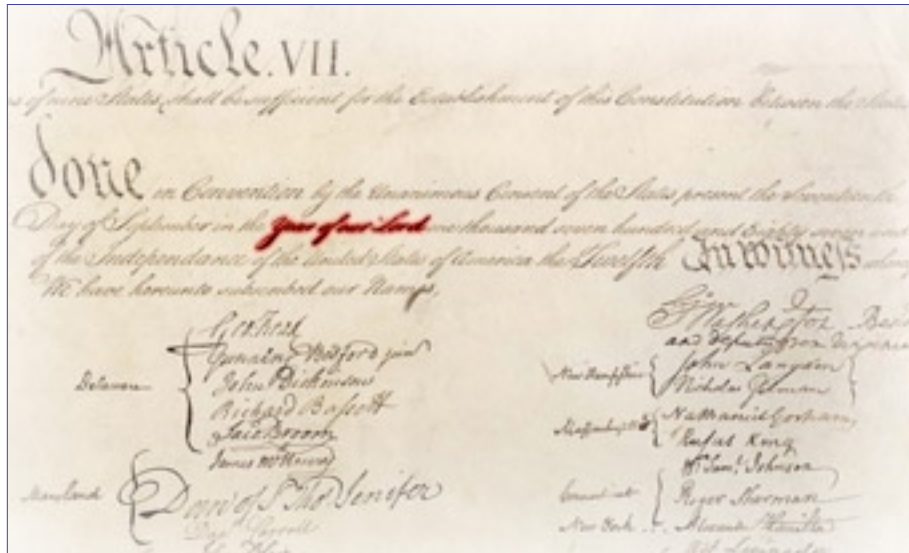 Article. VII.
of nine States, shall be sufficient for the Establishment of this Constitution between the States
done in Convention by the Unanimous Consent of the States present the Seventeenth
Day of September in the Year of our Lord one thousand seven hundred and Eighty seven and
of the Independance of the United States of America the Twelfth In Witness
We have hereunto subscribed our Names,
Delaware
Geo: Read
Gunning Bedford jun
John Dickinson
Richard Bassett
Jaco: Broom
Maryland
James McHenry
Dan of St Thos Jenifer
Carroll
Washington
and deputy from
New Hampshire
John Langdon
Nicholas Gilman
Massachusetts
Nathaniel Gorham
Rufus King
Connecticut
Wm Saml Johnson
Roger Sherman
New York
Alexander Hamilton